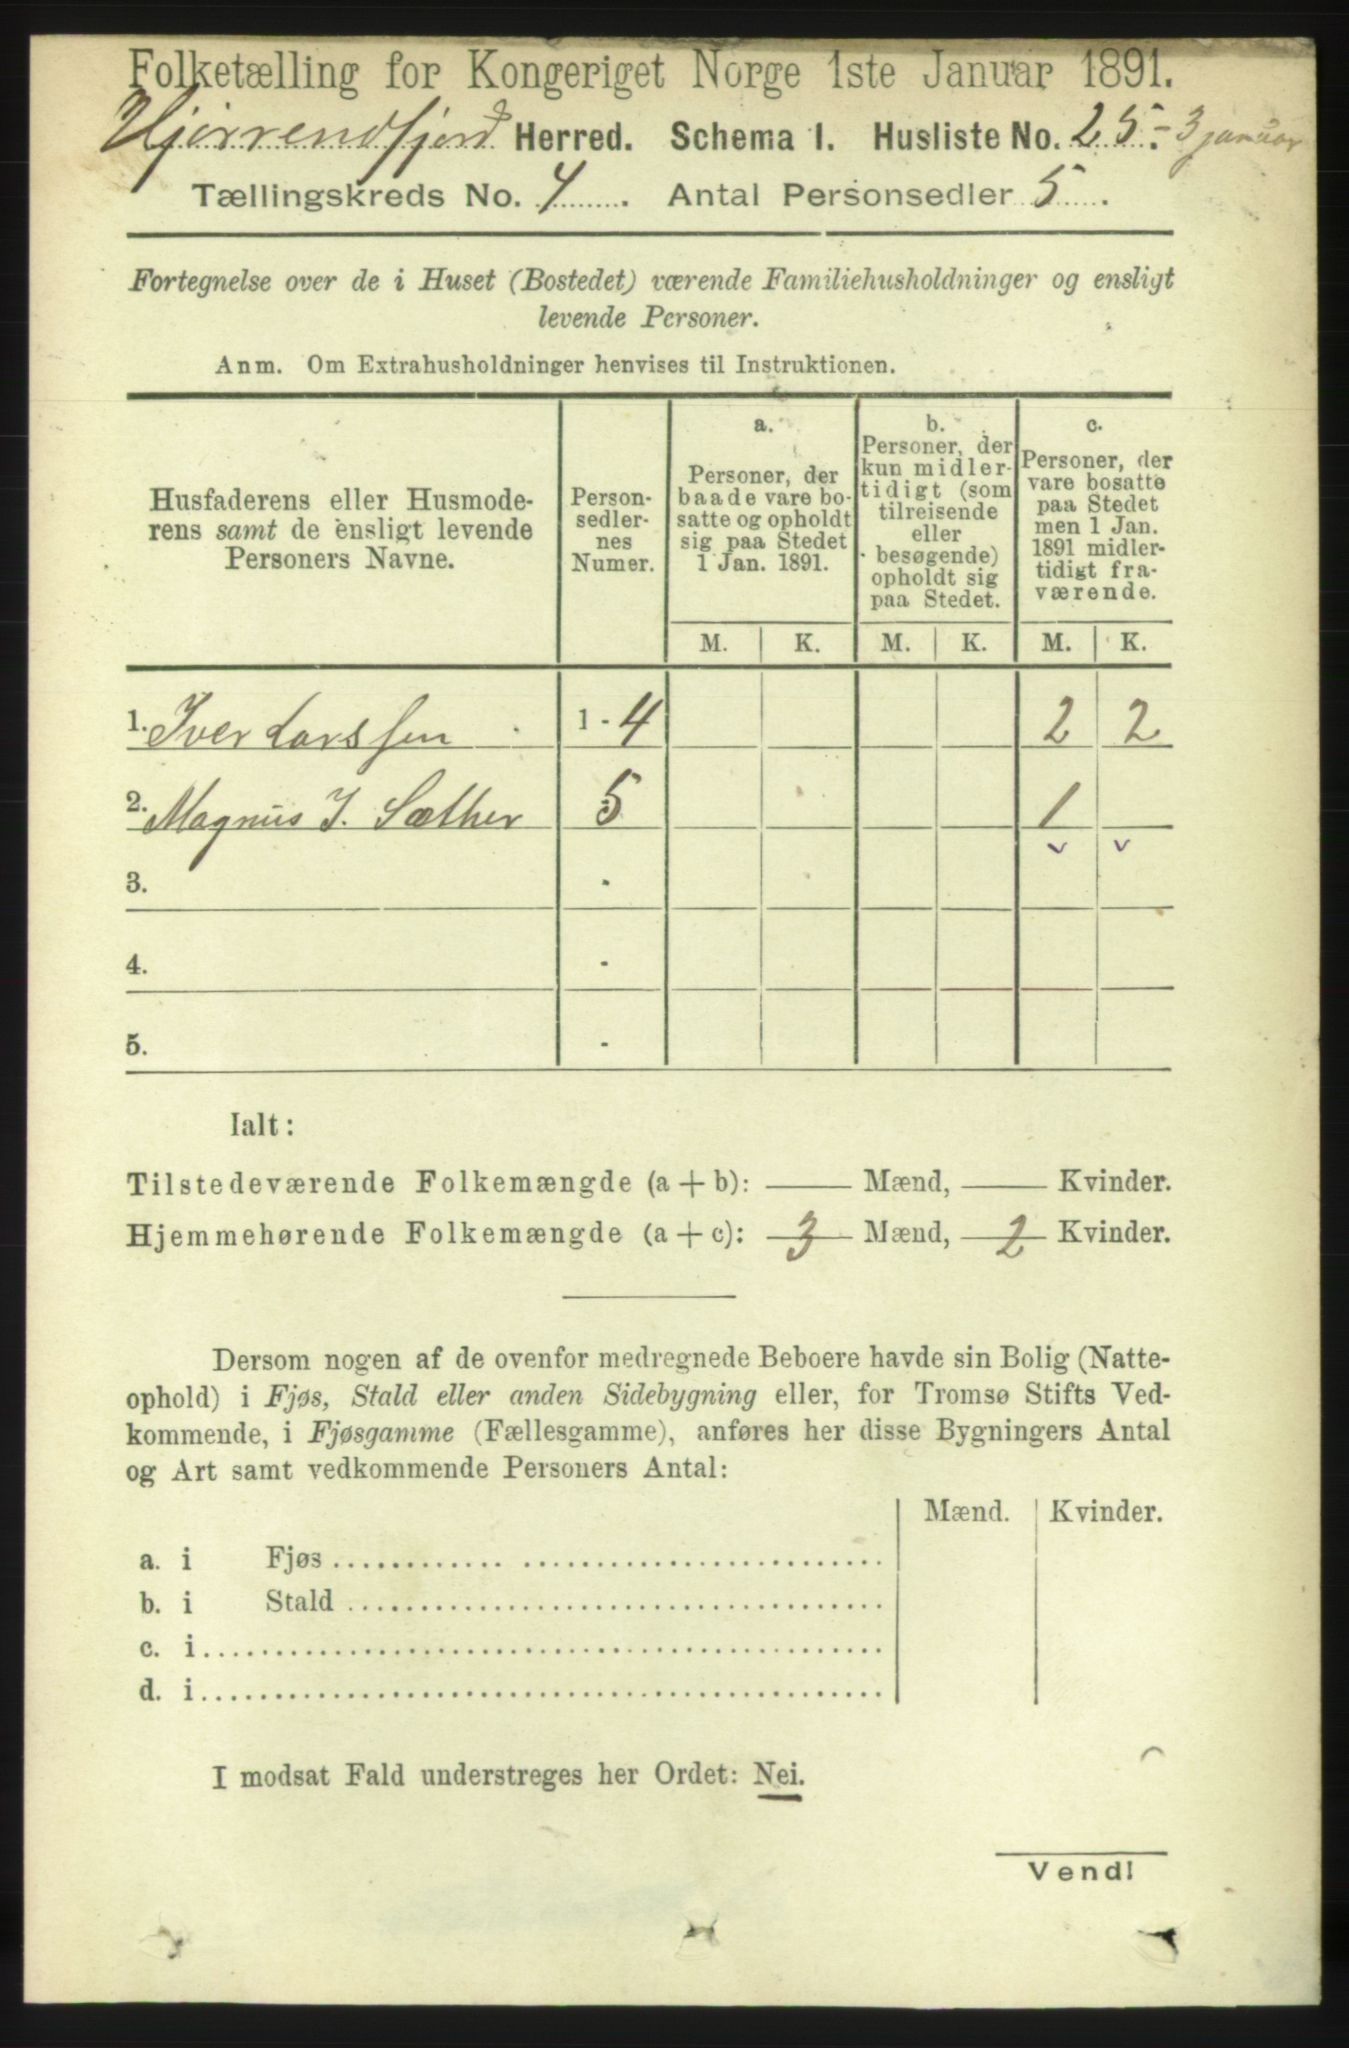 Folketælling for Kongeriget Norge 1ste Januar 1891.
Hjørrendfjord Herred. Schema 1. Husliste No. 25. - 3 januar
Tællingskreds No. 4. Antal Personsedler 5.
Fortegnelse over de i Huset (Bostedet) værende Familiehusholdninger og ensligt
levende Personer.
Anm. Om Extrahusholdninger henvises til Instruktionen.
Husfaderens eller Husmode-
rens samt de ensligt levende
Personers Navne.
Person-
sedler-
nes
Numer.
a.
Personer, der
baade vare bo-
satte og opholdt
sig paa Stedet
1 Jan. 1891.
b.
Personer, der
kun midler-
tidigt (som
tilreisende
eller
besøgende)
opholdt sig
paa Stedet.
c.
Personer, der
vare bosatte
paa Stedet
men 1 Jan.
1891 midler-
tidigt fra-
værende.
M. K. M. K. M. K.
1. Iver Larssen 1 - 4 2 2
2. Magnus I. Sæther 5 1
3. -
4. -
5. -
Ialt:
Tilstedeværende Folkemængde (a + b): — Mænd, — Kvinder.
Hjemmehørende Folkemængde (a + c): 3 Mænd, 2 Kvinder.
Dersom nogen af de ovenfor medregnede Beboere havde sin Bolig (Natte-
ophold) i Fjøs, Stald eller anden Sidebygning eller, for Tromsø Stifts Ved-
kommende, i Fjøsgamme (Fællesgamme), anføres her disse Bygningers Antal
og Art samt vedkommende Personers Antal:
Mænd. Kvinder.
a. i Fjøs
b. i Stald
c. i
d. i
I modsat Fald understreges her Ordet: Nei.
Vend!